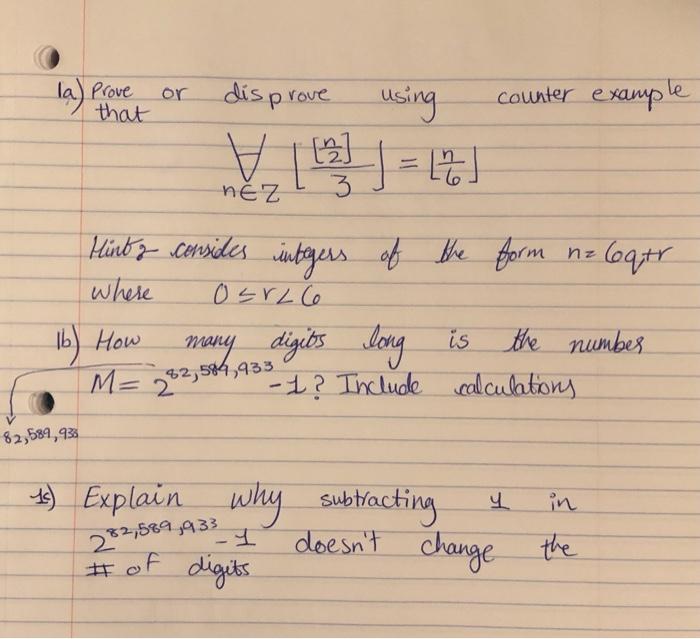 1a) Prove or disprove using counter example
that
∀ n∈Z ⌊[n/2]/3⌋ = ⌊n/6⌋
Hint: consider integers of the form n = 6q+r
where 0 ≤ r < 6
1b) How many digits long is the number
M = 2^82,589,933 - 1? Include calculations
82,589,933
1c) Explain why subtracting 1 in
2^82,589,933 - 1 doesn't change the
# of digits